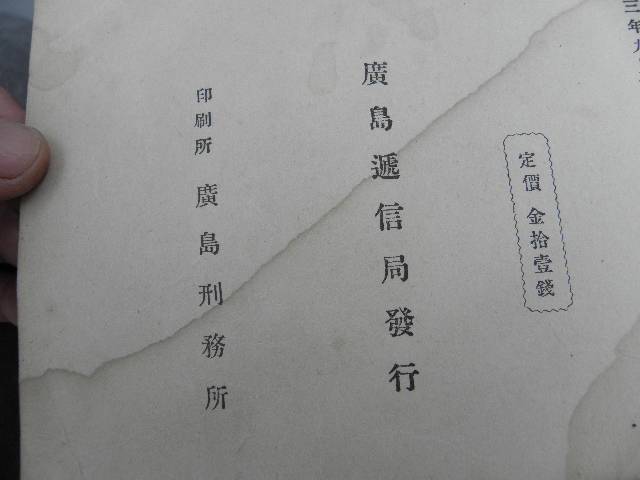 三年九
定價 金拾壹錢
廣島遞信局發行
印刷所 廣島刑務所